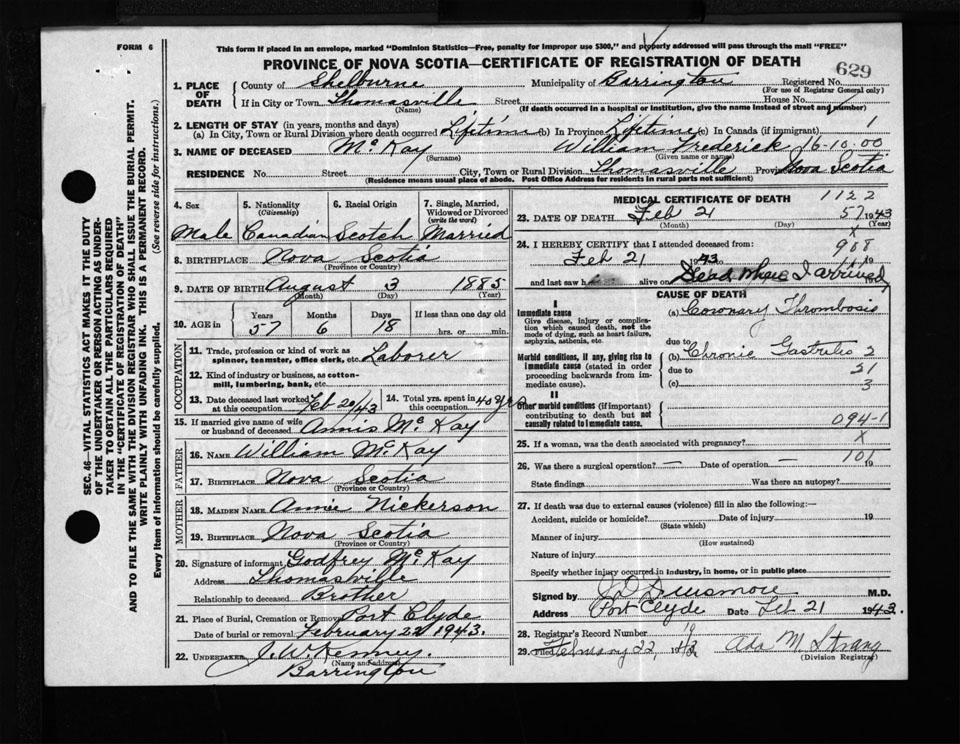 FORM 6
This form if placed in an envelope, marked "Dominion Statistics—Free, penalty for improper use $300," and properly addressed will pass through the mail "FREE"
PROVINCE OF NOVA SCOTIA—CERTIFICATE OF REGISTRATION OF DEATH
629
SEC. 46—VITAL STATISTICS ACT MAKES IT THE DUTY
OF THE UNDERTAKER OR PERSON ACTING AS UNDER-
TAKER TO OBTAIN ALL THE PARTICULARS REQUIRED
IN THE "CERTIFICATE OF REGISTRATION OF DEATH"
AND TO FILE THE SAME WITH THE DIVISION REGISTRAR WHO SHALL ISSUE THE BURIAL PERMIT.
WRITE PLAINLY WITH UNFADING INK. THIS IS A PERMANENT RECORD.
Every item of information should be carefully supplied. (See reverse side for instructions.)
1. PLACE OF DEATH County of Shelburne Municipality of Barrington Registered No.
(For use of Registrar General only)
If in City or Town Thomasville Street House No.
(Name) (If death occurred in a hospital or institution, give the name instead of street and number)
2. LENGTH OF STAY (in years, months and days)
(a) In City, Town or Rural Division where death occurred Lifetime (b) In Province Lifetime (c) In Canada (if immigrant) 1
3. NAME OF DECEASED McKay William Frederick 16-10.00
(Surname) (Given name or names)
RESIDENCE No. Street City, Town or Rural Division Thomasville Province Nova Scotia
(Residence means usual place of abode. Post Office Address for residents in rural parts not sufficient)
4. Sex 5. Nationality (Citizenship) 6. Racial Origin 7. Single, Married, Widowed or Divorced (write the word)
Male Canadian Scotch Married
8. BIRTHPLACE Nova Scotia
(Province or Country)
9. DATE OF BIRTH August 3 1885
(Month) (Day) (Year)
10. AGE in Years Months Days If less than one day old
57 6 18 hrs. or min.
OCCUPATION
11. Trade, profession or kind of work as spinner, teamster, office clerk, etc. Laborer
12. Kind of industry or business, as cotton-mill, lumbering, bank, etc.
13. Date deceased last worked at this occupation Feb 20/43 14. Total yrs. spent in this occupation 40 yrs
15. If married give name of wife or husband of deceased Annis McKay
FATHER
16. NAME William McKay
17. BIRTHPLACE Nova Scotia
(Province or Country)
MOTHER
18. MAIDEN NAME Annie Nickerson
19. BIRTHPLACE Nova Scotia
(Province or Country)
20. Signature of informant Godfrey McKay
Address Thomasville
Relationship to deceased Brother
21. Place of Burial, Cremation or Removal Port Clyde
Date of burial or removal February 22 1943.
22. UNDERTAKER J. W. Kenney.
(Name and address)
Barrington
MEDICAL CERTIFICATE OF DEATH 1122
23. DATE OF DEATH Feb 21 57 1943
(Month) (Day) (Year)
x
24. I HEREBY CERTIFY that I attended deceased from: 908
Feb 21 1943 to
and last saw h alive on Dead when I arrived 19
CAUSE OF DEATH
I
Immediate cause (a) Coronary Thrombosis
Give disease, injury or complication which caused death, not the mode of dying, such as heart failure, asphyxia, asthenia, etc.
due to
Morbid conditions, if any, giving rise to immediate cause (stated in order proceeding backwards from immediate cause). (b) Chronic Gastritis 2
due to 21
(c) 3
II
Other morbid conditions (if important) contributing to death but not causally related to immediate cause. 094-1
25. If a woman, was the death associated with pregnancy? x
26. Was there a surgical operation? — Date of operation — 101 19
State findings Was there an autopsy?
27. If death was due to external causes (violence) fill in also the following:
Accident, suicide or homicide? Date of injury 19
(State which)
Manner of injury
(How sustained)
Nature of injury
Specify whether injury occurred in industry, in home, or in public place
Signed by Dinsmore M.D.
Address Port Clyde Date Feb 21 1943.
28. Registrar's Record Number 10
29. Filed February 22, 1943 Ada M. Strang
(Division Registrar)